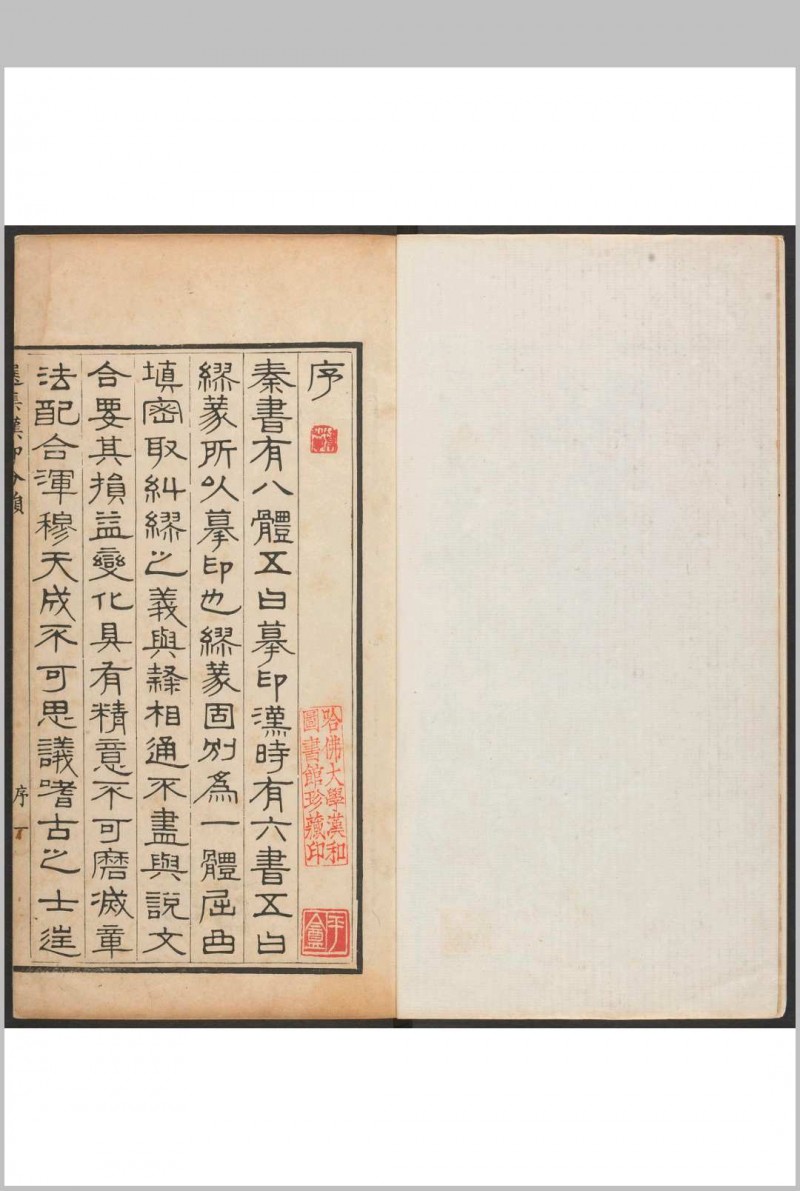 序
秦書有八體五曰摹印漢時有六書五曰
繆篆所以摹印也繆篆固別爲一體屈曲
填密取糾繆之義與隸相通不盡與說文
合要其損益變化具有精意不可磨滅章
法配合渾穆天成不可思議嗜古之士遑
選集漢印分韻
序
哈佛大學漢和
圖書館珍藏印
平盦